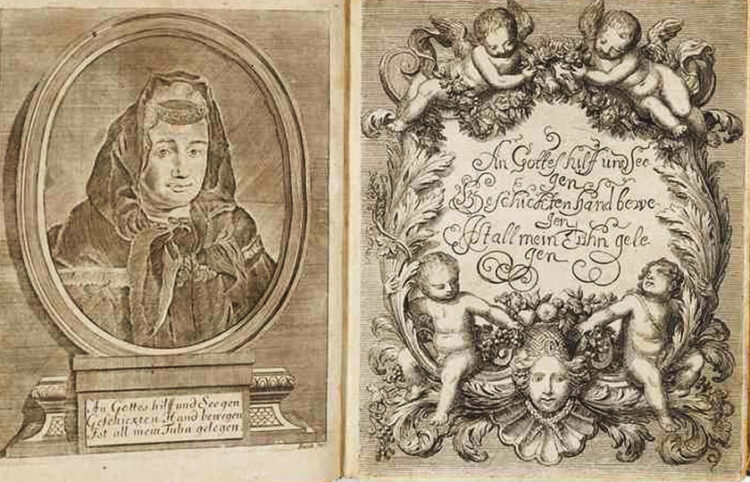 An Gottes hilff und Seegen
Geschickten Hand bewegen
Ist all mein Tuhn gelegen.
An Gottes hilff und See
gen
Geschickten hand bewe-
gen
Ist all mein Tuhn gele
gen